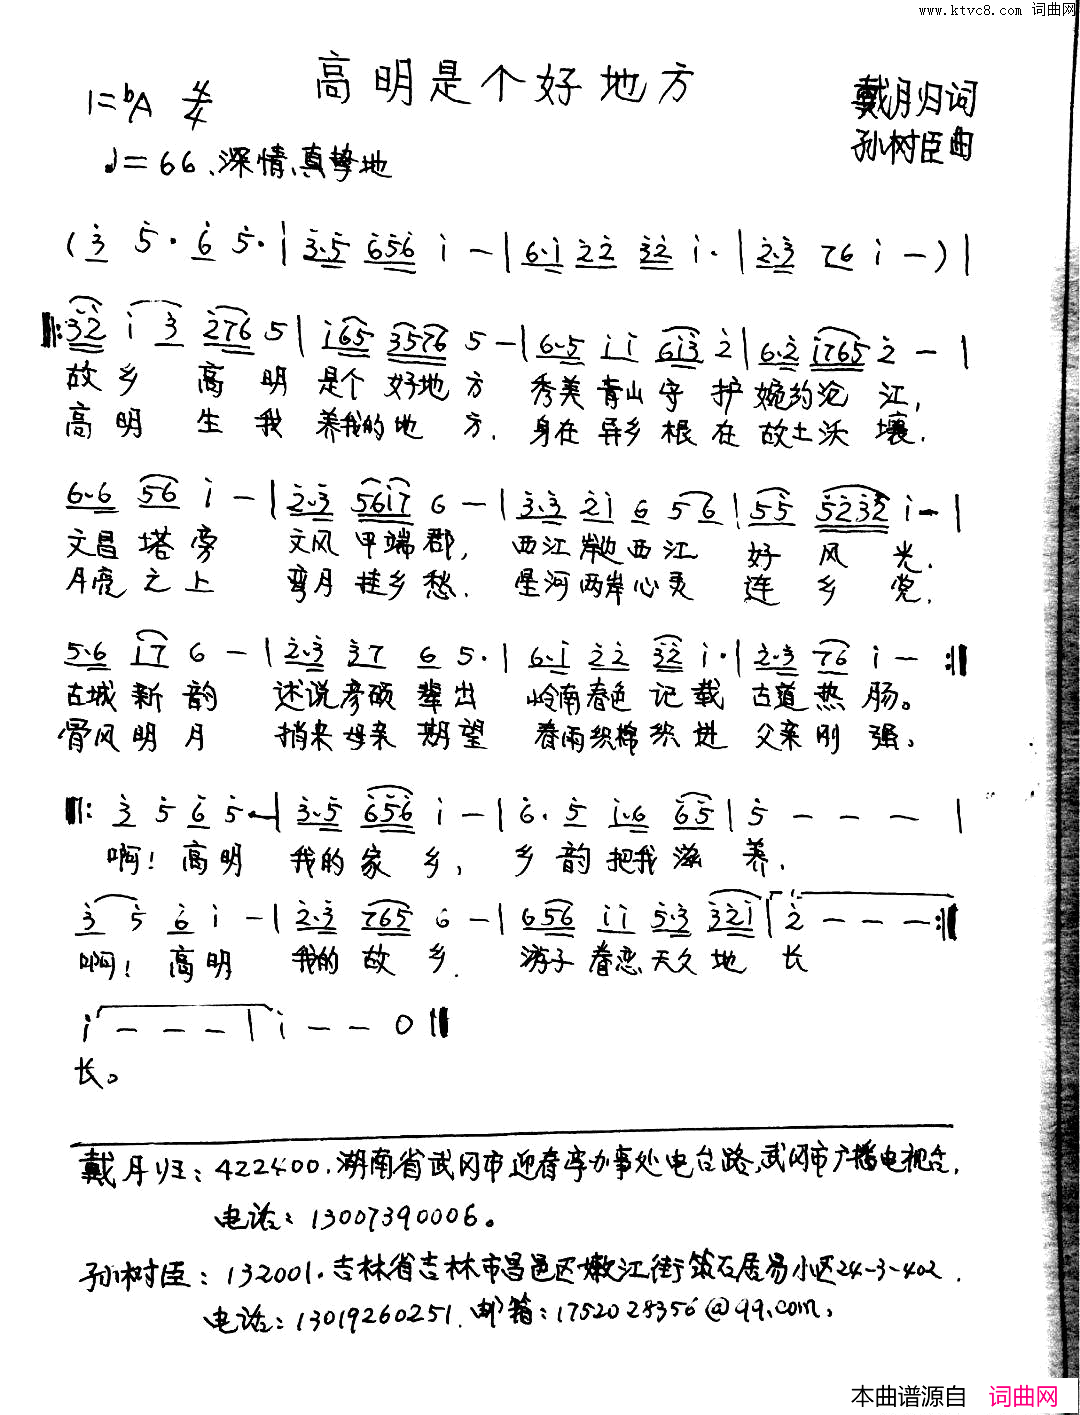 www.ktvc8.com 词曲网
高明是个好地方
1=bA 4/4
戴月归词
♩=66、深情、真挚地
孙树臣曲
(3 5· 6 5·|3·5 656 i -|6·i 22 32 i·|2·3 76 i -)|
‖:32 i 3 276 5|i65 3576 5 -|6·5 ii 6i3 2|6·2 i765 2 -|
故乡 高明 是个好地方 秀美青山守护婉约沧江,
高明 生我 养我的地方. 身在异乡根在故土沃壤.
6·6 56 i -|2·3 56i7 6 -|3·3 2i 6 56|55 5232 i -|
文昌塔旁 文风甲端郡, 西江岸边西江 好风光.
月亮之上 弯月挂乡愁. 星河两岸心灵 连乡党.
5·6 i7 6 -|2·3 37 6 5·|6·i 22 32 i·|2·3 76 i - :‖
古城新韵 述说彦硕辈出 岭南春色记载 古道热肠。
骨风明月 捎来母亲期望 春雨织棉织进 父亲刚强。
‖: 3 5 6 5·|3·5 656 i -|6· 5 i·6 65|5 - - -|
啊!高明 我的家乡, 乡韵把我滋养.
3 5 6 i -|2·3 765 6 -|656 ii 5·3 32i|2 - - - :‖
啊!高明 我的故乡. 游子眷恋天久地长
i - - -|i - - 0‖
长。
戴月归:422400.湖南省武冈市迎春亭办事处电台路,武冈市广播电视台.
电话:13007390006。
孙树臣:132001.吉林省吉林市昌邑区嫩江街筑石居易小区24-3-402.
电话:13019260251.邮箱:1752028356@qq.com.
本曲谱源自 词曲网